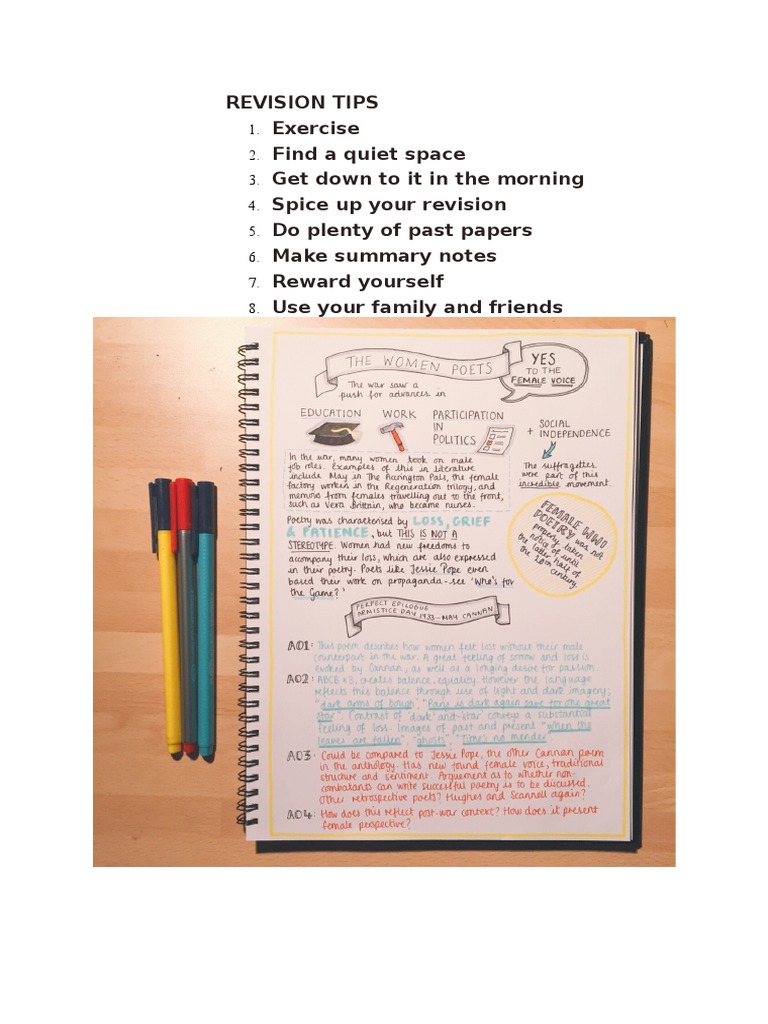 REVISION TIPS
1. Exercise
2. Find a quiet space
3. Get down to it in the morning
4. Spice up your revision
5. Do plenty of past papers
6. Make summary notes
7. Reward yourself
8. Use your family and friends
THE WOMEN POETS
YES
TO THE
FEMALE VOICE
The war saw a
push for advances in
EDUCATION
WORK
PARTICIPATION
IN
POLITICS
+ SOCIAL
INDEPENDENCE
The suffragettes
were part of this
incredible movement.
In the war, many women took on male
job roles. Examples of this in literature
include May in The Accrington Pals, the female
factory workers in the Regeneration trilogy, and
memoirs from females travelling out to the front,
such as Vera Brittain, who became nurses.
FEMALE WW1
POETRY was not
properly taken
notice of until
the latter half of
the 20th
century.
Poetry was characterised by LOSS, GRIEF
& PATIENCE, but THIS IS NOT A
STEREOTYPE. Women had new freedoms to
accompany their loss, which are also expressed
in their poetry. Poets like Jessie Pope even
based their work on propaganda - see 'Who's for
the Game?'
PERFECT EPILOGUE
ARMISTICE DAY 1933 - MAY CANNAN
AO1: This poem describes how women felt lost without their male
counterpart in the war. A great feeling of sorrow and loss is
evoked by Cannan, as well as a longing desire for passion.
AO2: ABCB x 8, creates balance, equality. However the language
reflects this balance through use of light and dark imagery;
"dark arms of bough", "Paris is dark again save for one great
star". Contrast of 'dark' and 'star' conveys a substantial
feeling of loss. Images of past and present "when the
leaves are fallen", "ghosts", "Time; no mender"
AO3: Could be compared to Jessie Pope, the other Cannan poem
in the anthology. Has new found female voice, traditional
structure and sentiment. Arguement as to whether non-
combatants can write successful poetry is to be discussed.
Other retrospective poets? Hughes and Scannell again?
AO4: How does this reflect post-war context? How does it present
female perspective?